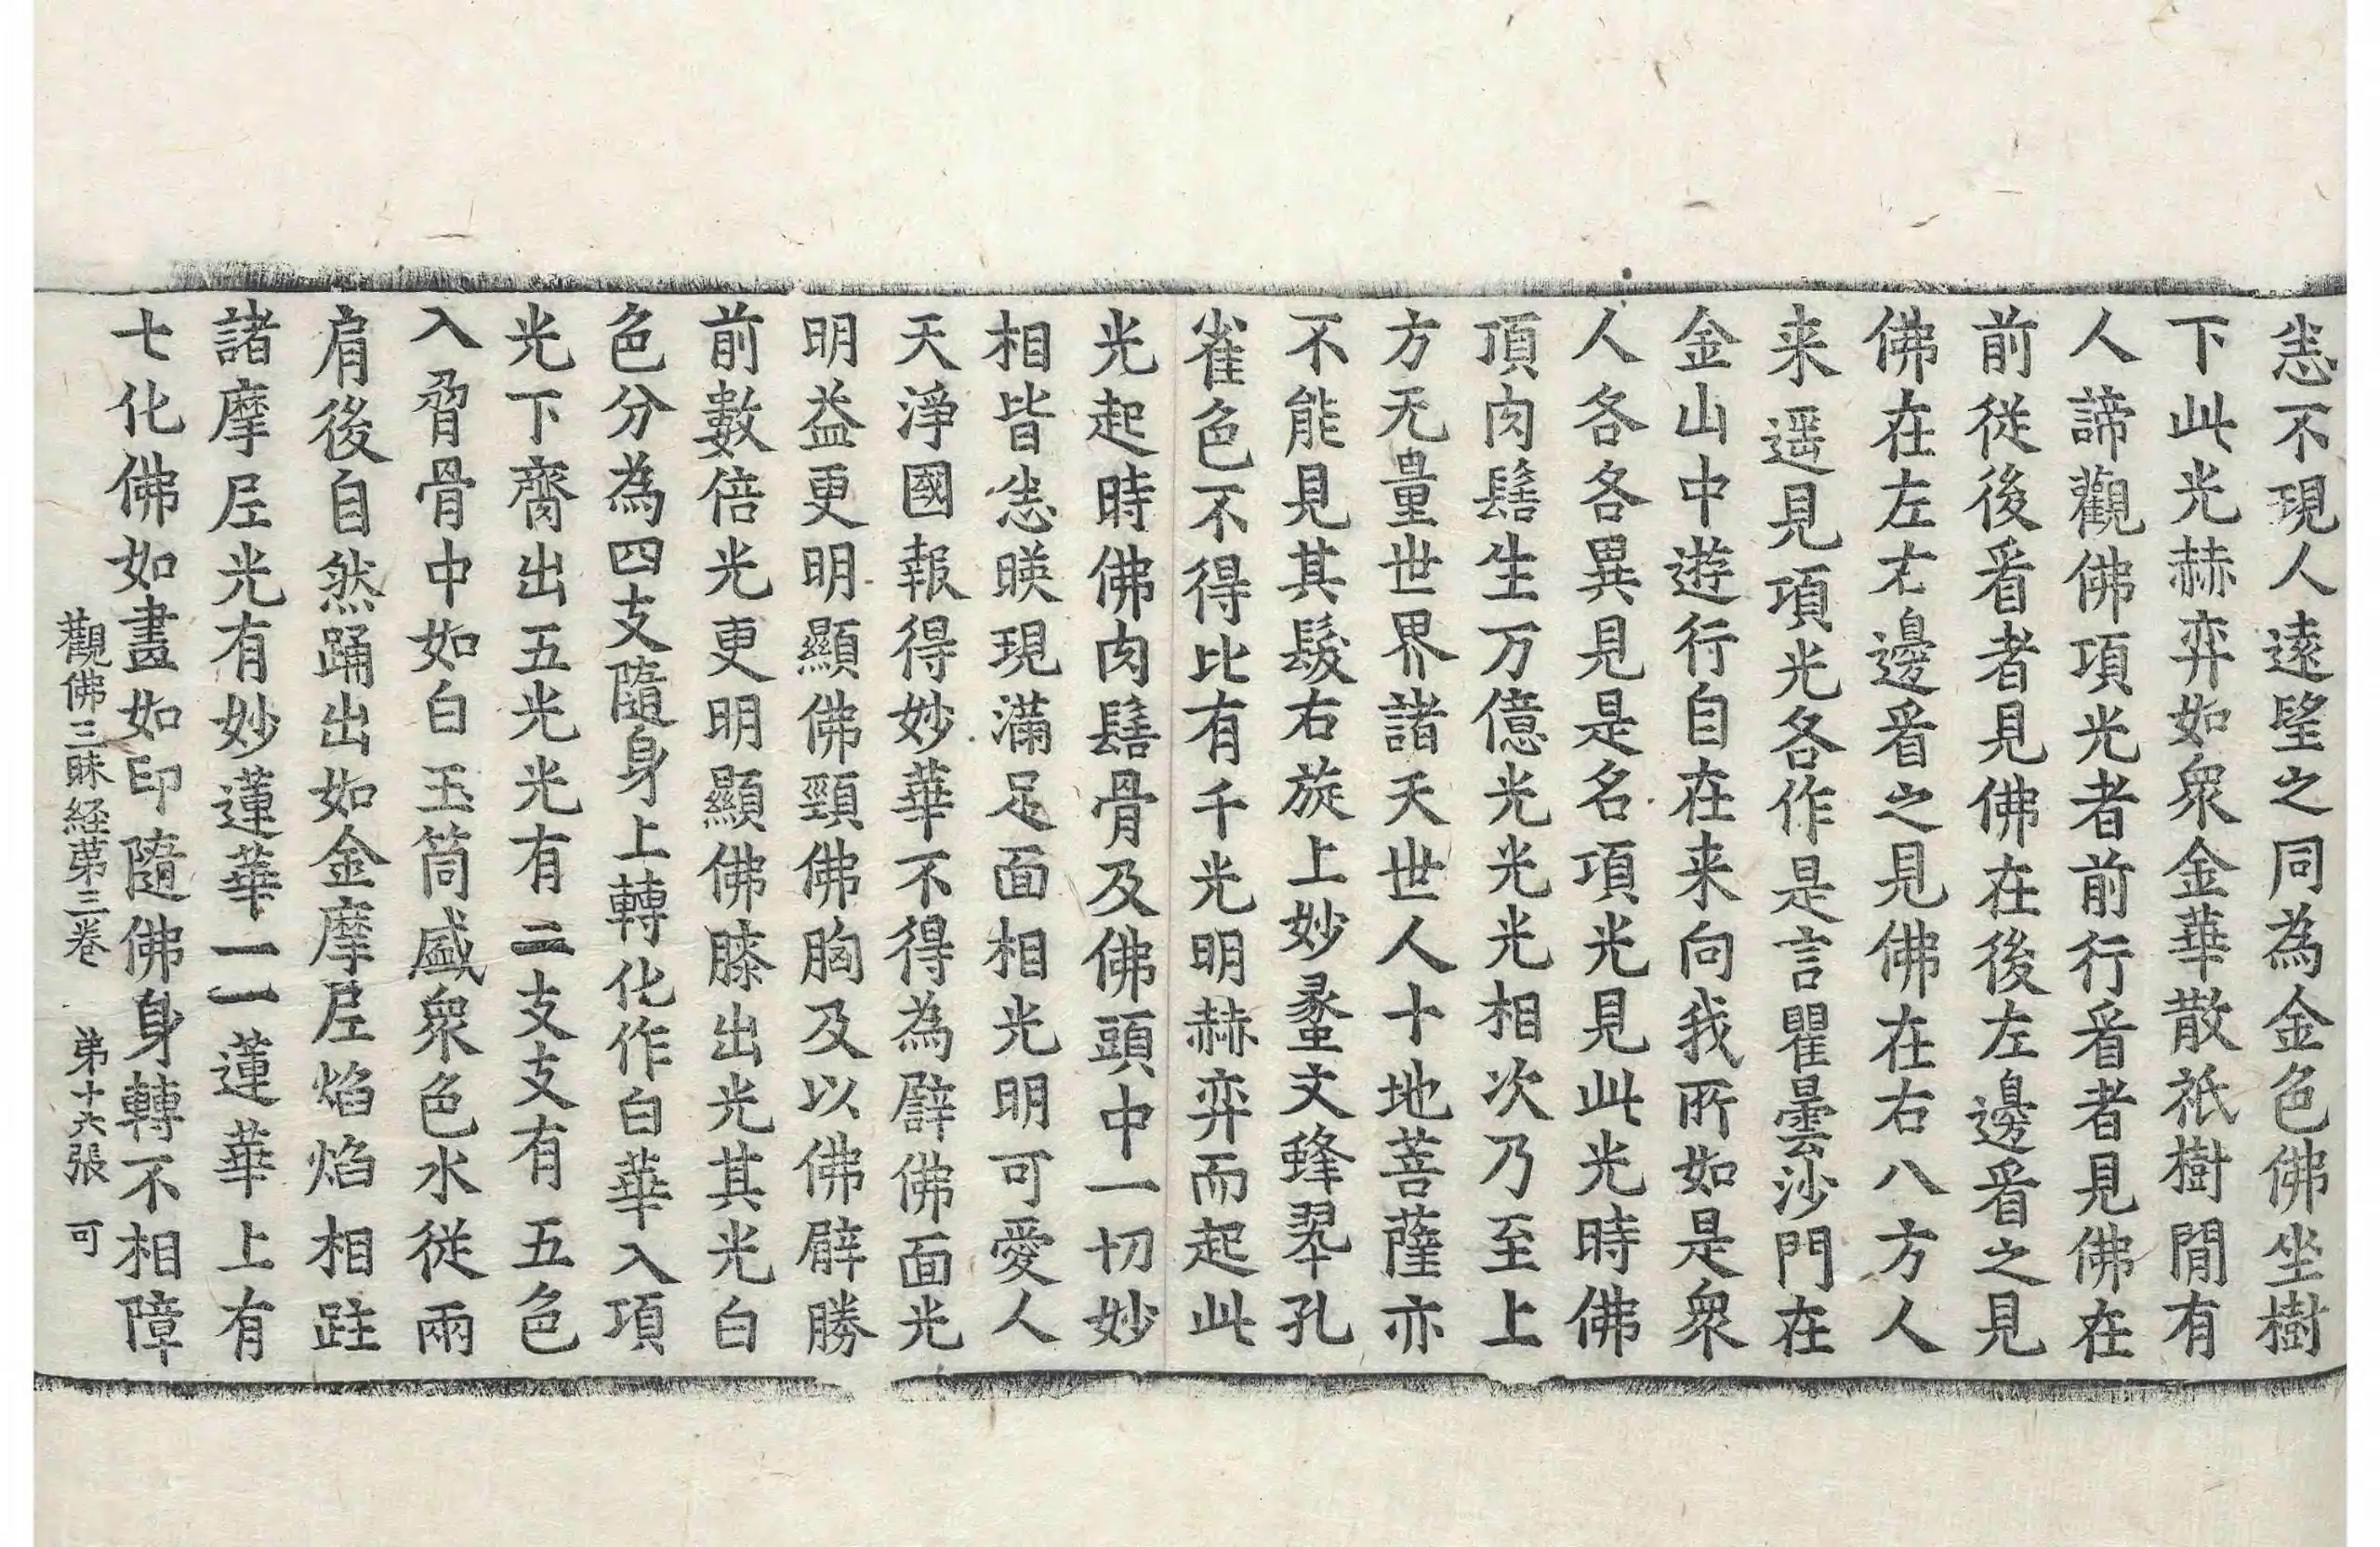 恙不現人遠望之同為金色佛坐樹
下此光赫弈如眾金華散祇樹間有
人諦觀佛項光者前行看者見佛在
前從後看者見佛在後左邊看之見
佛在左右邊看之見佛在右八方人
来遥見項光各作是言瞿曇沙門在
金山中遊行自在来向我所如是眾
人各各異見是名項光見此光時佛
頂肉髻生万億光光光相次乃至上
方无量世界諸天世人十地菩薩亦
不能見其髮右旋上妙䖟文蜂翠孔
雀色不得比有千光明赫弈而起此
光起時佛肉髻骨及佛頭中一切妙
相皆恙暎現滿足面相光明可愛人
天淨國報得妙華不得為譬佛面光
明益更明顯佛頸佛胸及以佛臂勝
前數倍光更明顯佛膝出光其光白
色分為四支隨身上轉化作白華入項
光下齊出五光光有二支支有五色
入骨中如白玉筒盛眾色水從兩
肩後自然踊出如金摩尼焰焰相跓
諸摩尼光有妙蓮華一一蓮華上有
七化佛如畫如印隨佛身轉不相障
觀佛三昧経苐三巻　苐十六張　可